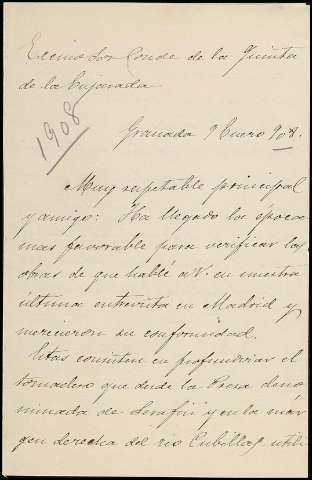 Excmo Sor Conde de la Quinta
de la Enjarada
1908
Granada 9 Enero 908.
Muy respetable principal
y amigo: Ha llegado la época
mas favorable para verificar las
obras de que hablé a V. en nuestra
última entrevista en Madrid y
merecieron su conformidad.
Estas consisten en profundizar el
tomadero que desde la Presa deno
minada de Serafín y en la már
gen derecha del rio Cubillas utili